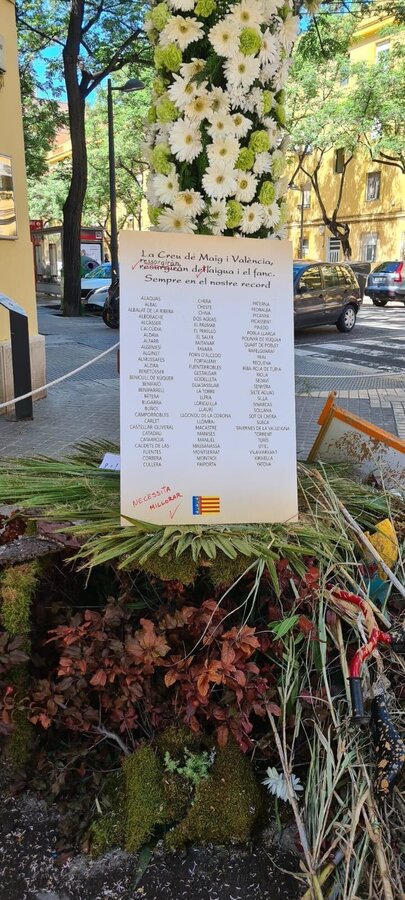 La Creu de Maig i València,
ressorgiran
resurgiran de l'aigua i el fanc.
Sempre en el nostre record
ALAQUÀS
ALBAL
ALBALAT DE LA RIBERA
ALBORACHE
ALCÀSSER
L'ALCÚDIA
ALDAIA
ALFAFAR
ALFARB
ALGEMESÍ
ALGINET
ALMUSSAFES
ALZIRA
BENETÚSSER
BENICULL DE XÚQUER
BENIFAIÓ
BENIPARRELL
BÉTERA
BUGARRA
BUÑOL
CAMPORROBLES
CARLET
CASTELLAR OLIVERAL
CATADAU
CATARROJA
CAUDETE DE LAS
FUENTES
CORBERA
CULLERA
CHERA
CHESTE
CHIVA
DOS AGUAS
EL PALMAR
EL PERELLÓ
EL SALER
FAVARA
FORN D'ALCEDO
FORTALENY
FUENTERROBLES
GESTALGAR
GODELLETA
GUADASSUAR
LA TORRE
LLÍRIA
LORIGUILLA
LLAURÍ
LLOMBAI
MACASTRE
MANISES
MANUEL
MASSANASSA
MONTSERRAT
MONTROI
PAIPORTA
PATERNA
PEDRALBA
PICANYA
PICASSENT
PINEDO
POBLA LLARGA
QUART DE POBLET
RAFELGUARAF
REAL
REQUENA
RIBA-ROJA DE TÚRIA
RIOLA
SEDAVÍ
SENYERA
SIETE AGUAS
SILLA
SINARCAS
SOLLANA
SOT DE CHERA
SUECA
TAVERNES DE LA VALLDIGNA
TORRENT
TURÍS
UTIEL
VILAMARXANT
XIRIVELLA
YÁTOVA
NECESSITA
MILLORAR